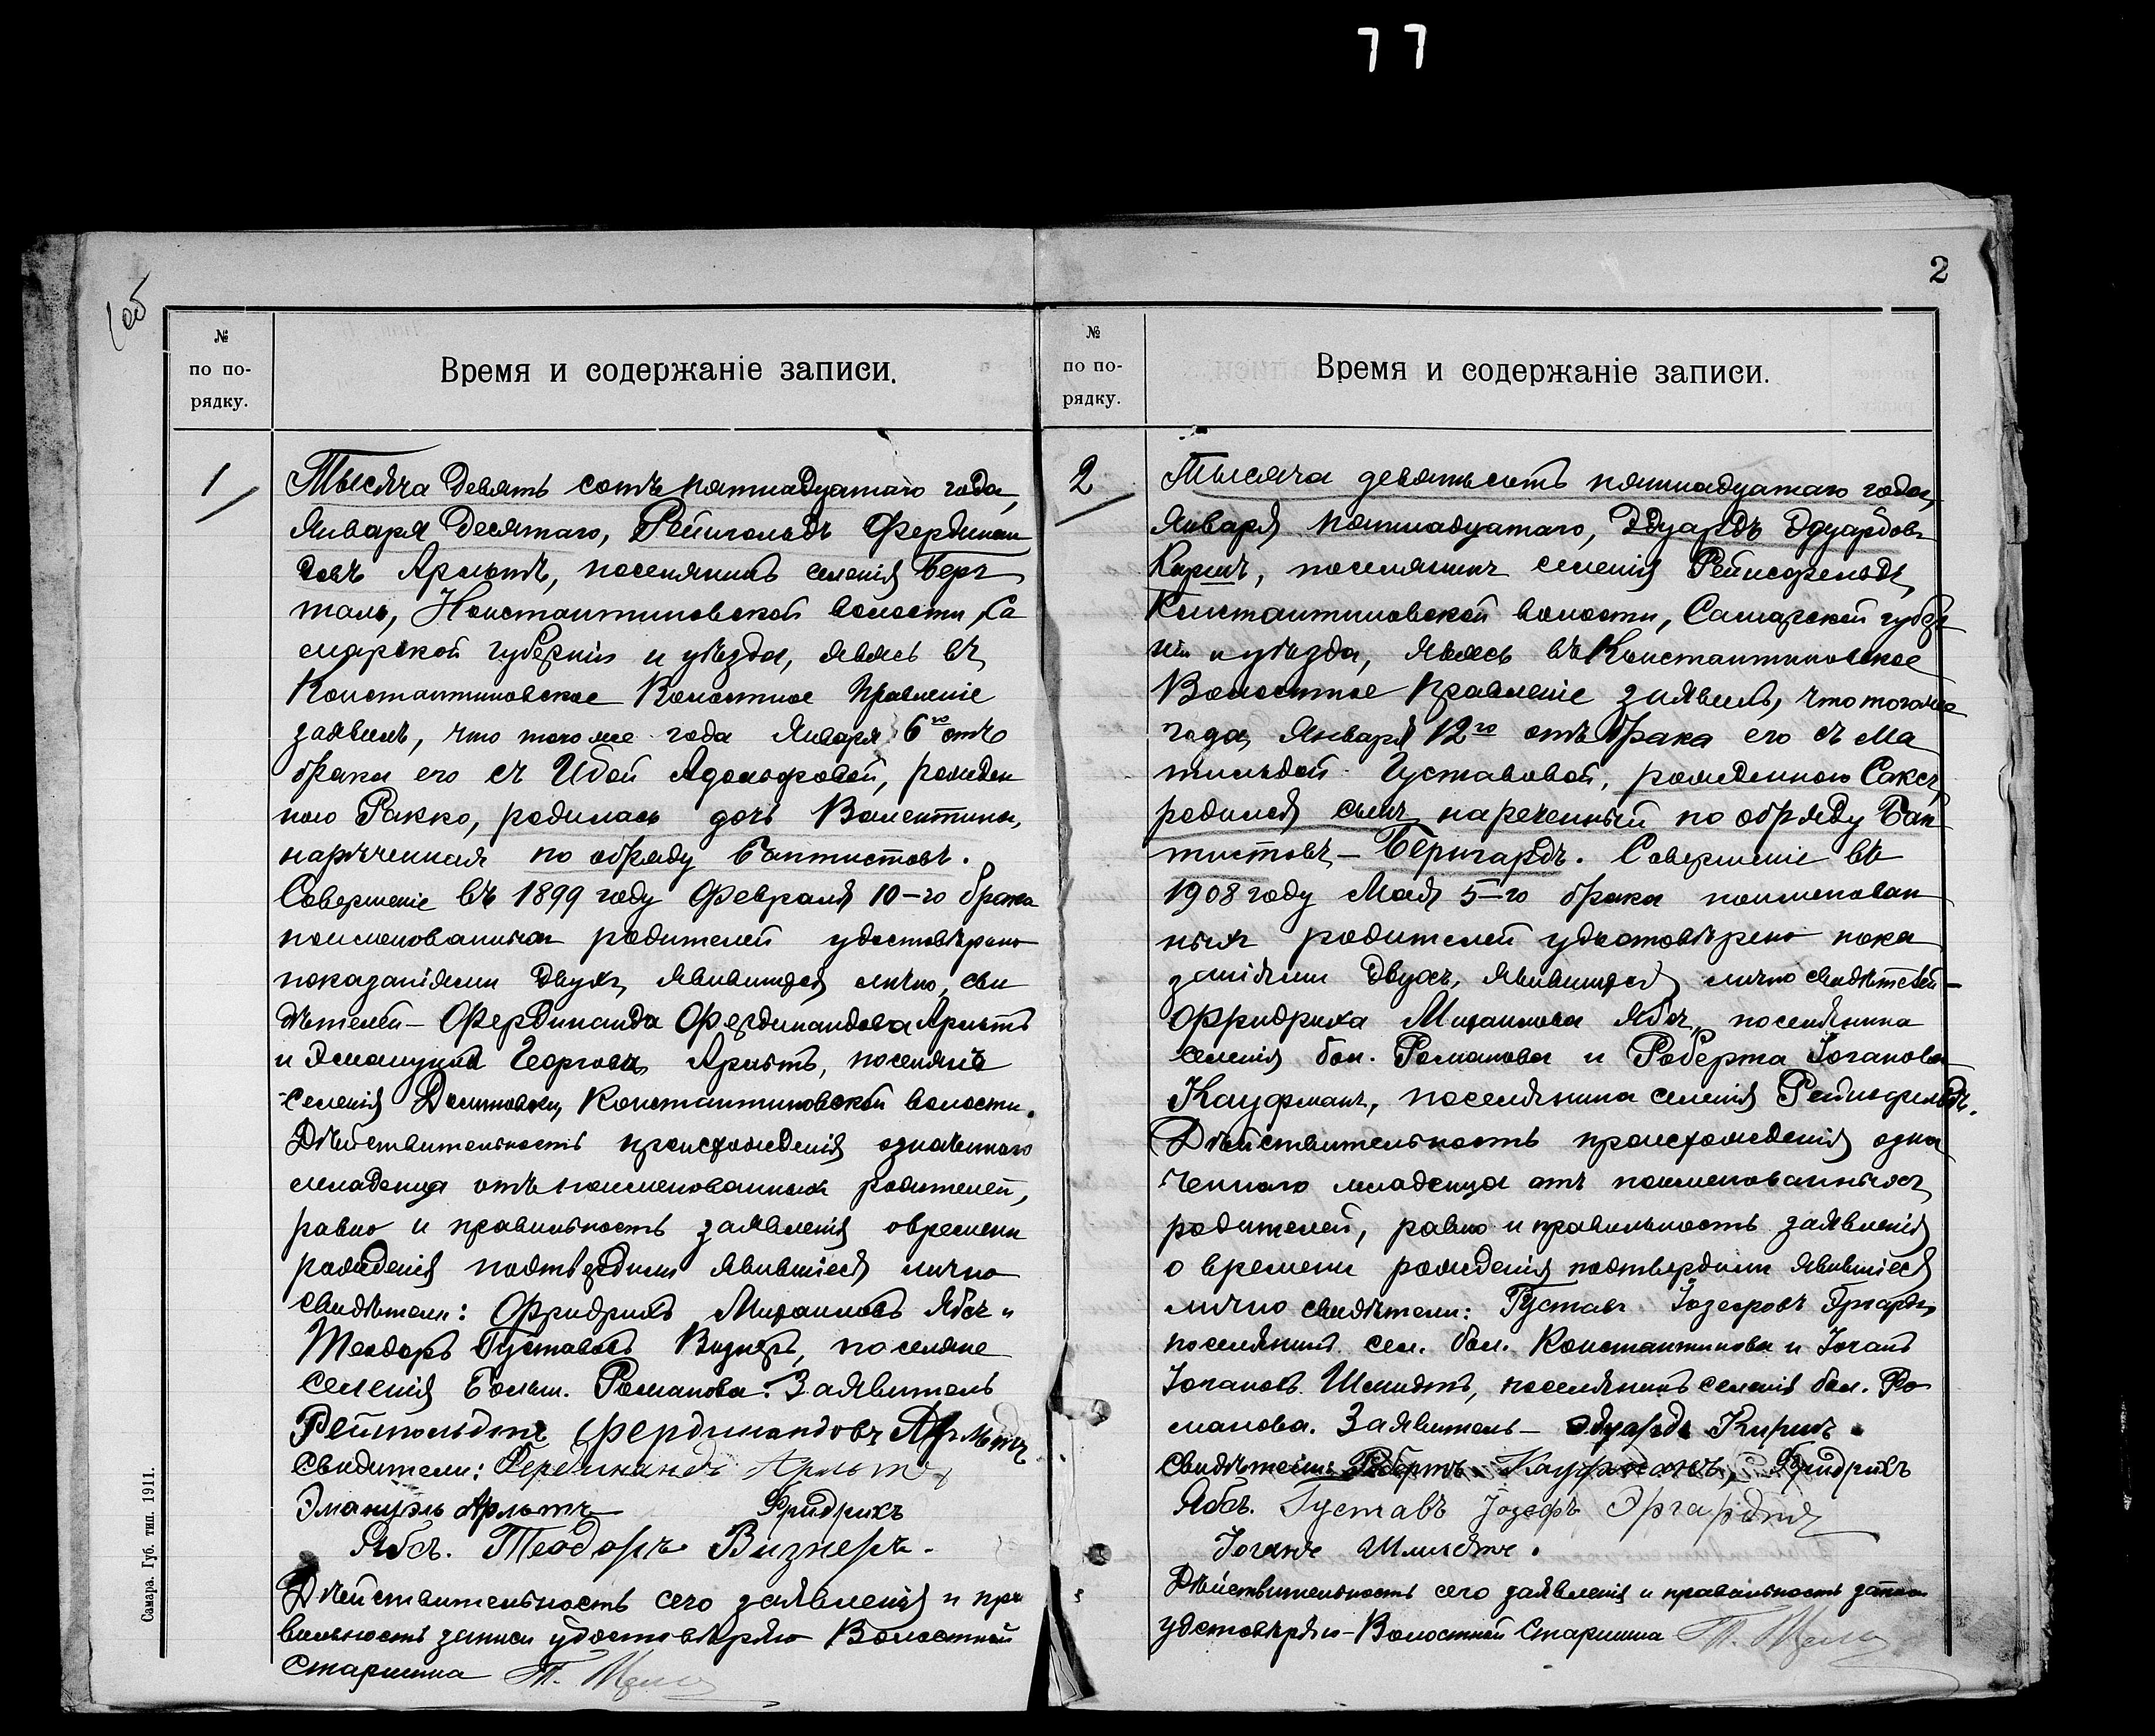 77
1об
2
№
по по-
рядку.
Время и содержаніе записи.
1
Тысяча девять сотъ пятнадцатаго года,
Января десятаго, Рейнгольдъ Фердинан
довъ Арльтъ, поселянинъ селенія Берг
таль, Константиновской волости, Са
марской губерніи и уѣзда, явясь въ
Константиновское Волостное Правленіе
заявилъ, что того же года Января 6го отъ
брака его съ Идой Адольфовой, рожден
ною Ракко, родилась дочь Валентина,
нарѣченная по обряду Баптистовъ.
Совершеніе въ 1899 году Февраля 10-го брака
поименованныхъ родителей удостовѣрено
показаніями двухъ, явившихся лично, сви
дѣтелей - Фердинанда Фердинандова Арльтъ
и Эмануила Георгова Арльтъ, поселянъ
селенія Константиновской волости.
Дѣйствительность происхожденія означеннаго
младенца отъ поименованныхъ родителей,
равно и правильность заявленія о времени
рожденія подтвердили явившіеся лично
свидѣтели: Фридрихъ Михаиловъ Ябсъ и
Теодоръ Густавовъ Визнеръ, поселяне
селенія Больш. Романова. Заявитель
Рейнгольдтъ Фердинандовъ Арльтъ
Свидители: Фердинандъ Арльтъ
Эмануэль Арльтъ Фридрихъ
Ябсъ. Теодоръ Визнеръ.
Дѣйствительность сего заявленія и пра
вильность записи удостовѣряю Волостной
Старшина
Самара. Губ. тип. 1911.
№
по по-
рядку.
Время и содержаніе записи.
2
Тысяча девятьсотъ пятнадцатаго года,
Января пятнадцатаго, Эдуардъ Эдуардовъ
Киршъ, поселянинъ селенія Рейнсфельдъ,
Константиновской волости, Самарской губер
ніи и уѣзда, явясь въ Константиновское
Волостное Правленіе заявилъ, что того же
года, Января 12го отъ брака его съ Ма
тильдой Густавовой, рожденною Саксъ,
родился сынъ нареченный по обряду Бап
тистовъ - Бернгардъ. Совершеніе въ
1908 году Мая 5-го брака поименован
ныхъ родителей удостовѣрено пока
заніями двухъ, явившихся лично свидѣтелей -
Фридриха Михаилова Ябсъ, поселянина
селенія бол. Романова и Роберта Іоганова
Кауфманъ, поселянина селенія Рейнсфельдъ.
Дѣйствительность происхожденія озна
ченнаго младенца отъ поименованныхъ
родителей, равно и правильность заявленія
о времени рожденія подтвердили явившіеся
лично свидѣтели: Густавъ Іозефовъ Эргардтъ
поселянинъ сел. бол. Константинова и Іоганъ
Іогановъ Шмидтъ, поселянинъ селенія бол. Ро
манова. Заявитель - Эдуардъ Киршъ.
Свидѣтели: Робертъ Кауфманъ, Фридрихъ
Ябсъ. Густавъ Іозефъ Эргардтъ
Іоганъ Шмидтъ.
Дѣйствительность сего заявленія и правильность записи
удостовѣряю - Волостной Старшина